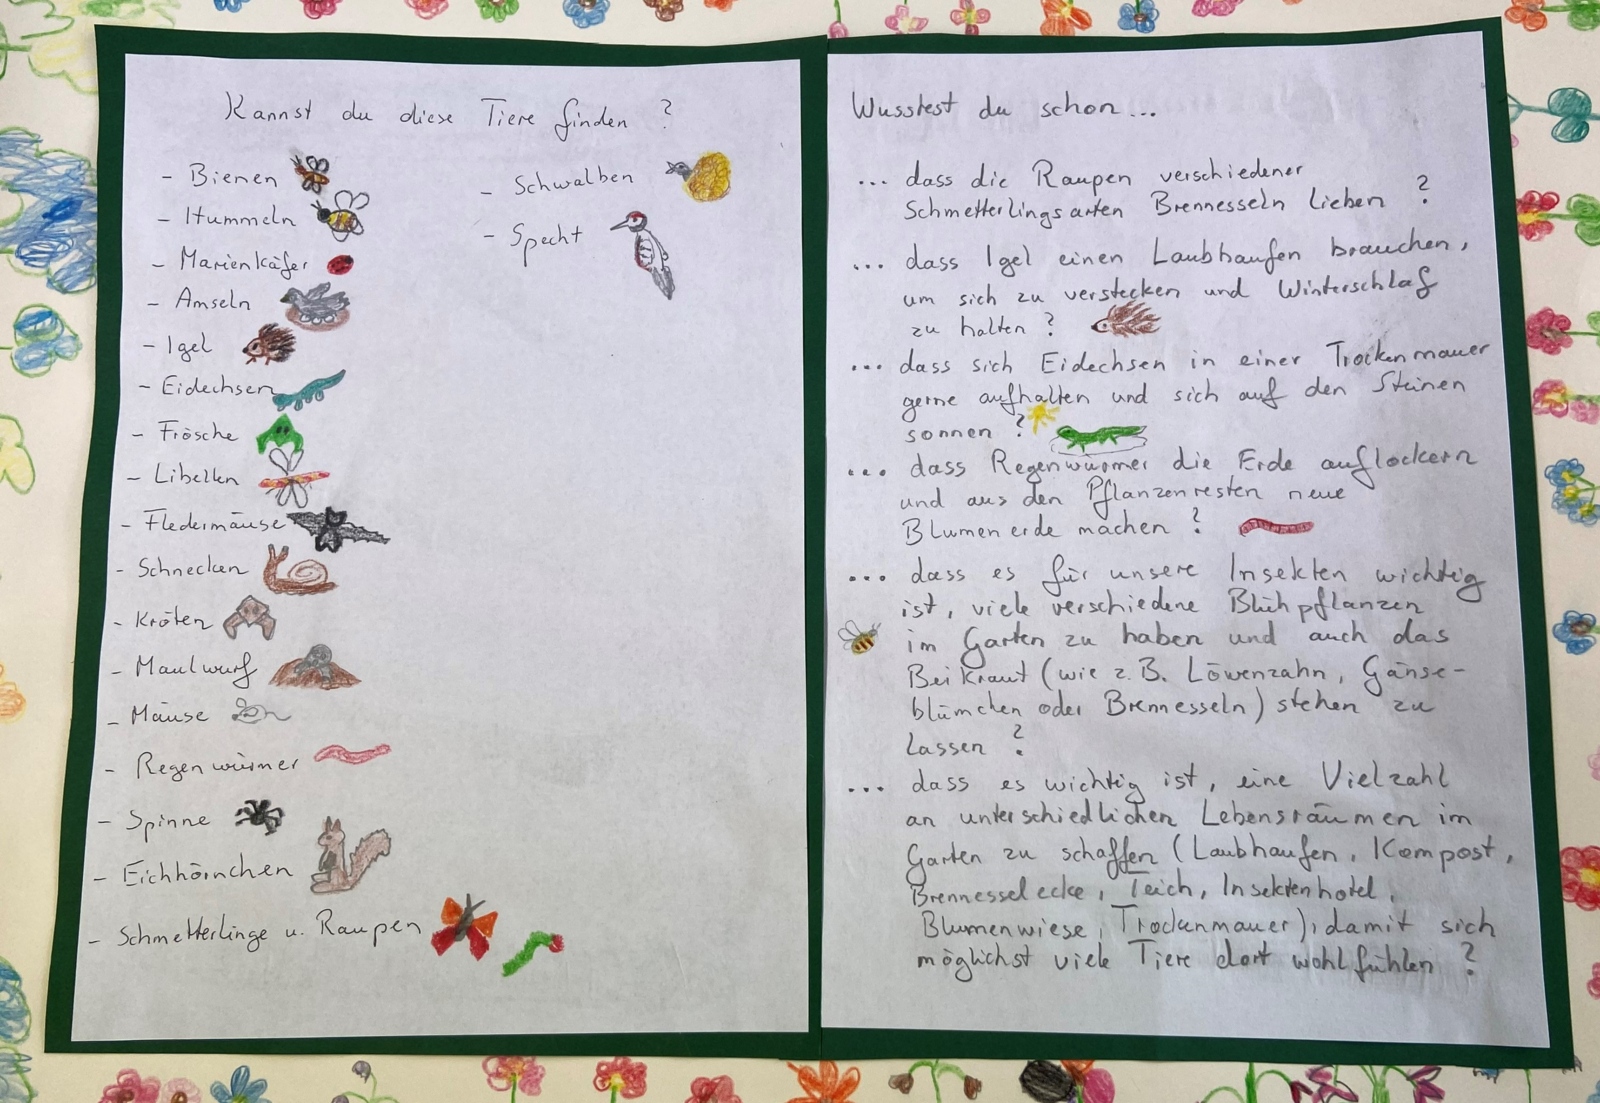 Kannst du diese Tiere finden ?
- Bienen
- Hummeln
- Marienkäfer
- Amseln
- Igel
- Eidechsen
- Frösche
- Libellen
- Fledermäuse
- Schnecken
- Kröten
- Maulwurf
- Mäuse
- Regenwürmer
- Spinne
- Eichhörnchen
- Schmetterlinge u. Raupen
- Schwalben
- Specht
Wusstest du schon...
... dass die Raupen verschiedener
Schmetterlingsarten Brennesseln lieben ?
... dass Igel einen Laubhaufen brauchen,
um sich zu verstecken und Winterschlaf
zu halten ?
... dass sich Eidechsen in einer Trockenmauer
gerne aufhalten und sich auf den Steinen
sonnen ?
... dass Regenwürmer die Erde auflockern
und aus den Pflanzenresten neue
Blumenerde machen ?
... dass es für unsere Insekten wichtig
ist, viele verschiedene Blühpflanzen
im Garten zu haben und auch das
Beikraut (wie z.B. Löwenzahn, Gänse-
blümchen oder Brennesseln) stehen zu
lassen ?
... dass es wichtig ist, eine Vielzahl
an unterschiedlichen Lebensräumen im
Garten zu schaffen (Laubhaufen, Kompost,
Brennesselecke, Teich, Insektenhotel,
Blumenwiese, Trockenmauer), damit sich
möglichst viele Tiere dort wohlfühlen ?